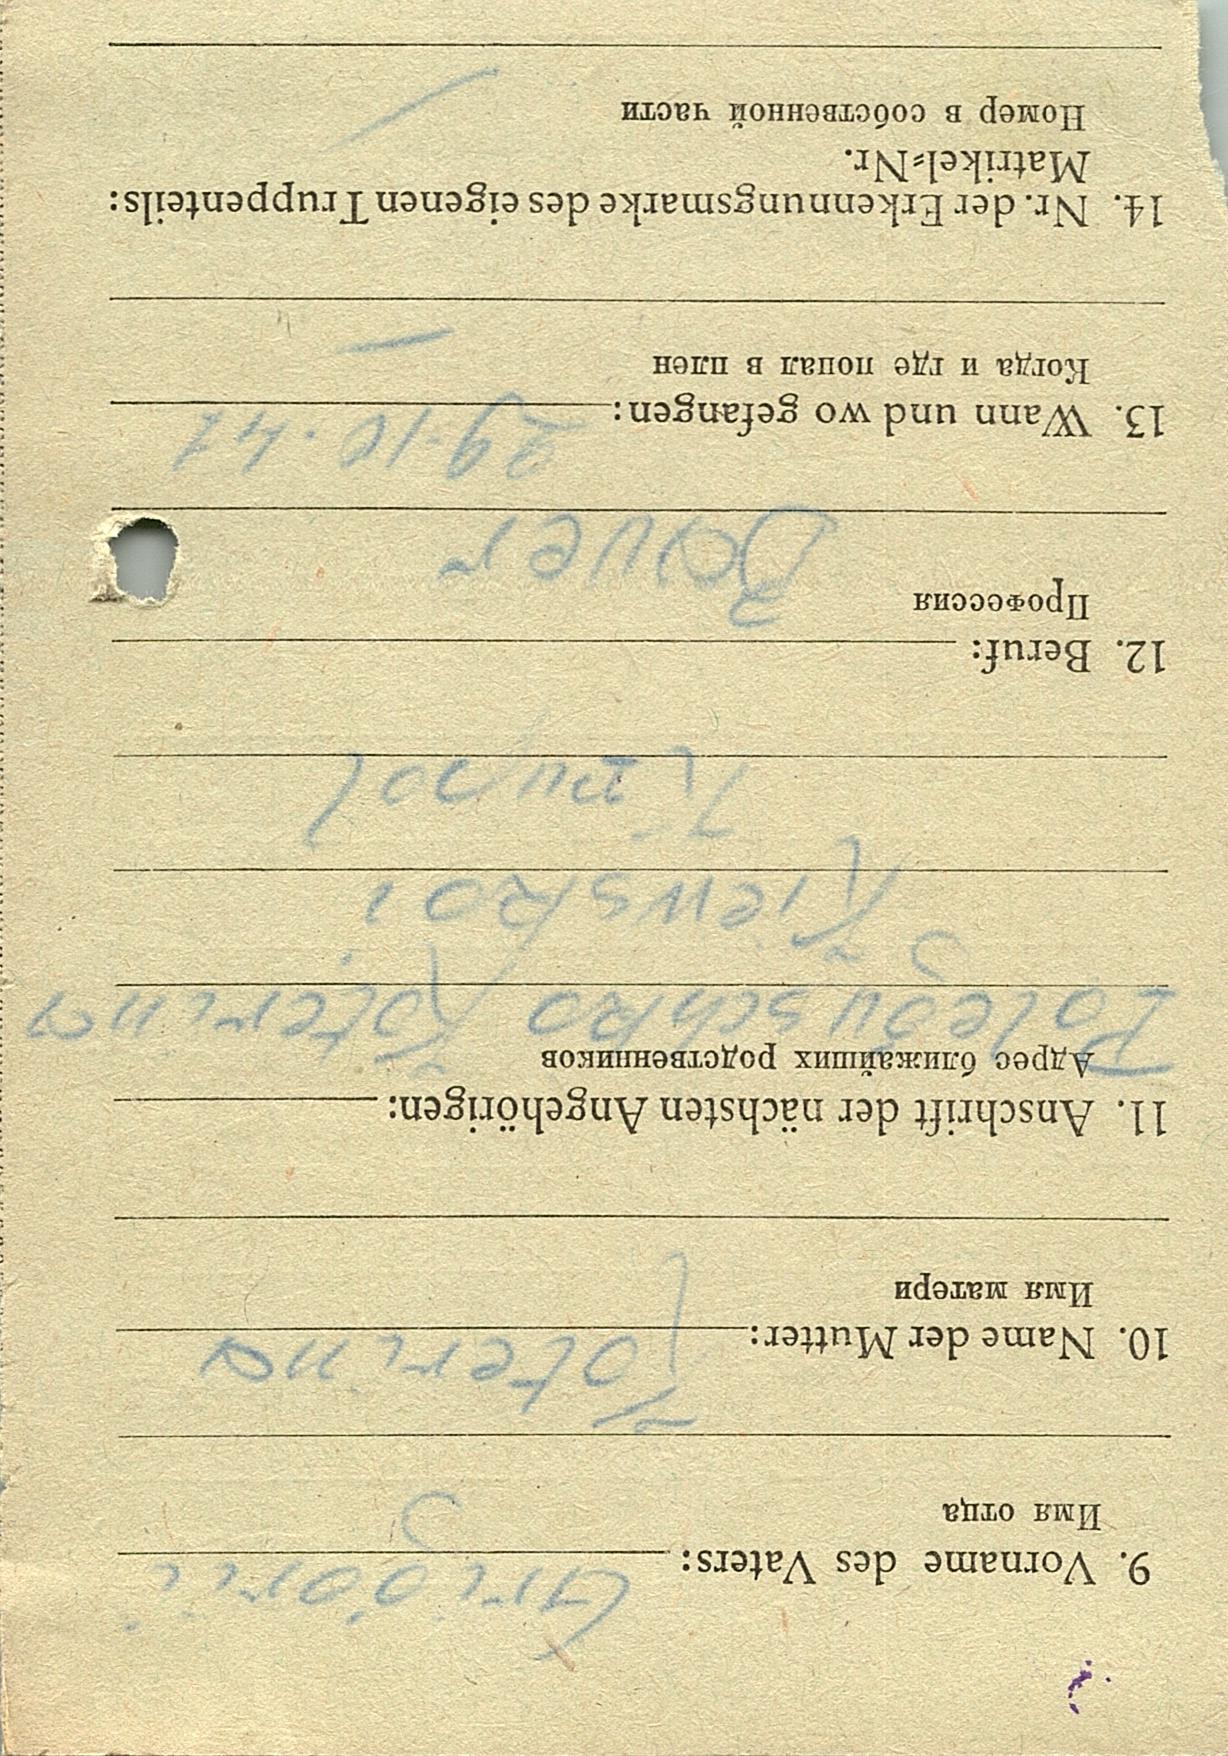 9. Vorname des Vaters:
Grigorii
Имя отца
10. Name der Mutter:
Katerina
Имя матери
11. Anschrift der nächsten Angehörigen:
Адрес ближайших родственников
Katerina
Kiewskoi
12. Beruf:
Профессия
Bauer
13. Wann und wo gefangen:
29.10.41
Когда и где попал в плен
—
14. Nr. der Erkennungsmarke des eigenen Truppenteils:
Matrikel=Nr.
Номер в собственной части
—